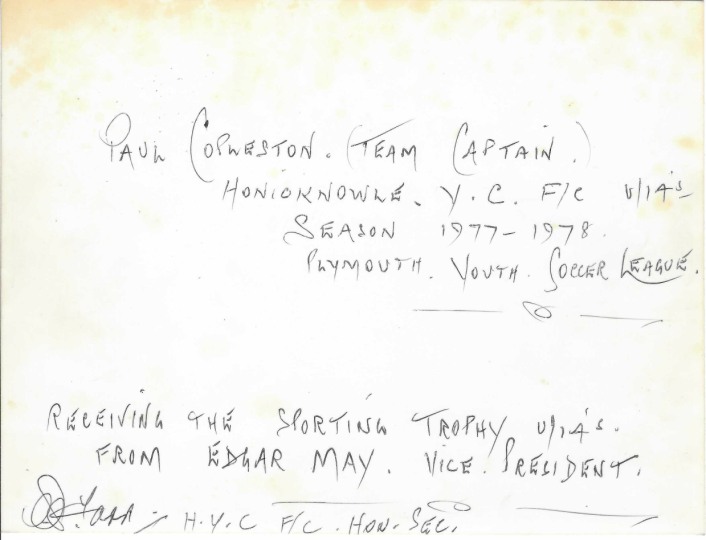 PAUL COPLESTON. (TEAM CAPTAIN.)
HONICKNOWLE. Y.C. F/C U/14's
SEASON 1977-1978.
PLYMOUTH. YOUTH. SOCCER LEAGUE.
RECEIVING THE SPORTING TROPHY U/14's.
FROM EDGAR MAY. VICE. PRESIDENT.
H.Y.C F/C. HON. SEC.